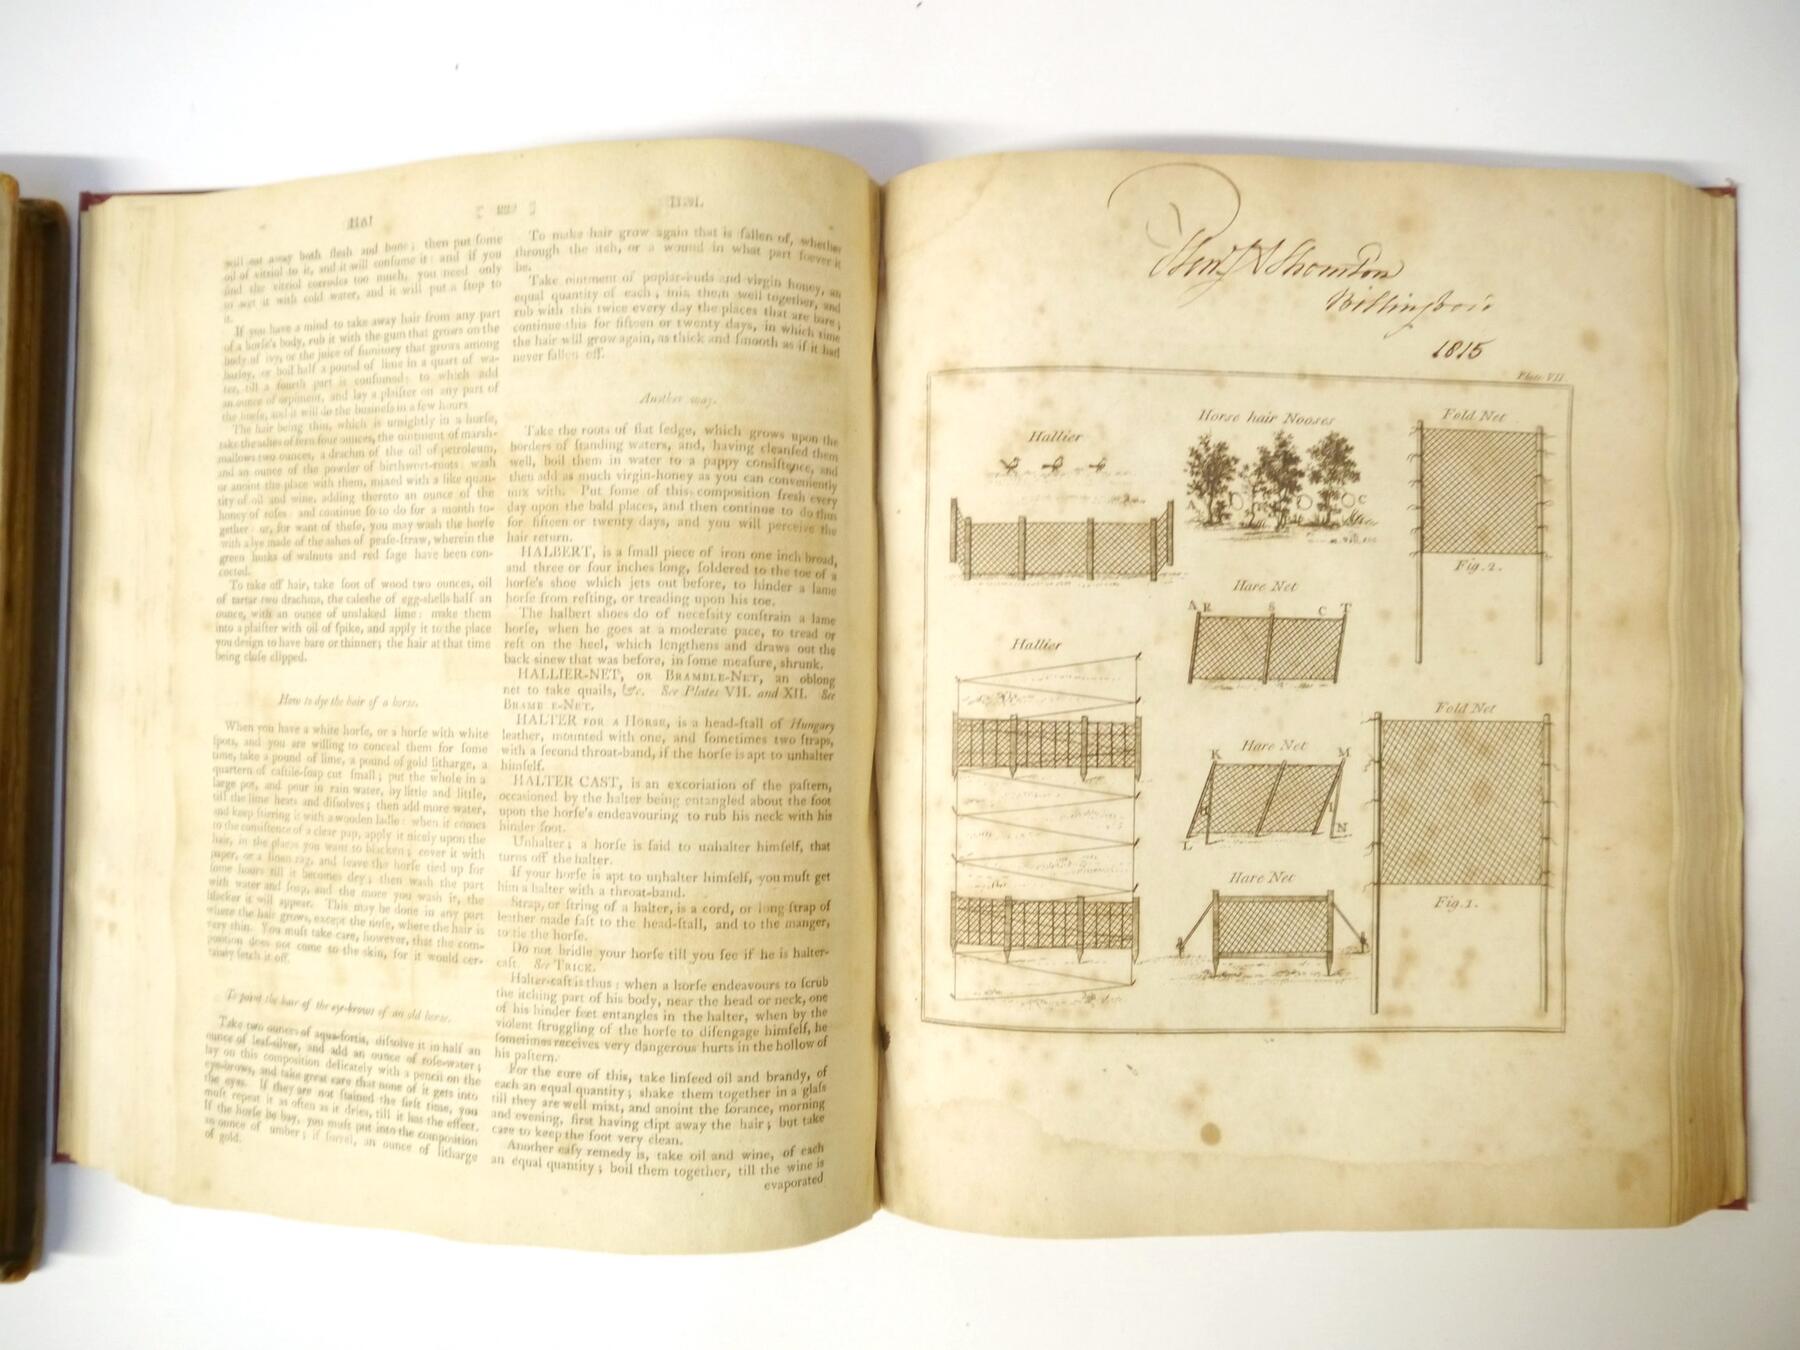 HAI
HAL
will eat away both flesh and bone; then put ſome
oil of vitriol to it, and it will conſume it: and if you
find the vitriol corrodes too much, you need only
to wet it with cold water, and it will put a ſtop to
it.
If you have a mind to take away hair from any part
of a horſe's body, rub it with the gum that grows on the
body of ivy, or the juice of fumitory that grows among
barley, or boil half a pound of lime in a quart of wa-
ter, till a fourth part is conſumed; to which add
an ounce of orpiment, and lay a plaiſter on any part of
the horſe, and it will do the buſineſs in a few hours.
The hair being thin, which is unſightly in a horſe,
take the aſhes of fern four ounces, the ointment of marſh-
mallows two ounces, a drachm of the oil of petroleum,
and an ounce of the powder of birthwort-roots: waſh
or anoint the place with them, mixed with a like quan-
tity of oil and wine, adding thereto an ounce of the
honey of roſes: and continue ſo to do for a month to-
gether: or, for want of theſe, you may waſh the horſe
with a lye made of the aſhes of peaſe-ſtraw, wherein the
green huſks of walnuts and red ſage have been con-
cocted.
To take off hair, take ſoot of wood two ounces, oil
of tartar two drachms, the caleſhe of egg-ſhells half an
ounce, with an ounce of unſlaked lime: make them
into a plaiſter with oil of ſpike, and apply it to the place
you deſign to have bare or thinner; the hair at that time
being cloſe clipped.
How to dye the hair of a horse.
When you have a white horſe, or a horſe with white
ſpots, and you are willing to conceal them for ſome
time, take a pound of lime, a pound of gold litharge, a
quartern of caſtile-ſoap cut ſmall; put the whole in a
large pot, and pour in rain water, by little and little,
till the lime heats and diſſolves; then add more water,
and keep ſtirring it with a wooden ladle: when it comes
to the conſiſtence of a clear pap, apply it nicely upon the
hair, in the places you want to blacken; cover it with
paper, or a linen rag, and leave the horſe tied up for
ſome hours till it becomes dry; then waſh the part
with water and ſoap, and the more you waſh it, the
blacker it will appear. This may be done in any part
where the hair grows, except the noſe, where the hair is
very thin. You muſt take care, however, that the com-
poſition does not come to the skin, for it would cer-
tainly fetch it off.
To paint the hair of the eye-brows of an old horse.
Take two ounces of aqua-fortis, diſſolve it in half an
ounce of leaf-ſilver, and add an ounce of roſe-water;
lay on this compoſition delicately with a pencil on the
eye-brows, and take great care that none of it gets into
the eyes. If they are not ſtained the firſt time, you
muſt repeat it as often as it dries, till it has the effect.
If the horſe be bay, you muſt put into the compoſition
an ounce of umber; if ſorrel, an ounce of litharge
of gold.
To make hair grow again that is fallen of, whether
through the itch, or a wound in what part ſoever it
be.
Take ointment of poplar-buds and virgin honey, an
equal quantity of each; mix them well together, and
rub with this twice every day the places that are bare;
continue this for fifteen or twenty days, in which time
the hair will grow again, as thick and ſmooth as if it had
never fallen off.
Another way.
Take the roots of flat ſedge, which grows upon the
borders of ſtanding waters, and, having cleanſed them
well, boil them in water to a pappy conſiſtence, and
then add as much virgin-honey as you can conveniently
mix with. Put ſome of this compoſition freſh every
day upon the bald places, and then continue to do thus
for fifteen or twenty days, and you will perceive the
hair return.
HALBERT, is a ſmall piece of iron one inch broad,
and three or four inches long, ſoldered to the toe of a
horſe's ſhoe which jets out before, to hinder a lame
horſe from reſting, or treading upon his toe.
The halbert ſhoes do of neceſsity conſtrain a lame
horſe, when he goes at a moderate pace, to tread or
reſt on the heel, which lengthens and draws out the
back sinew that was before, in ſome meaſure, shrunk.
HALLIER-NET, OR BRAMBLE-NET, an oblong
net to take quails, &c. See Plates VII. and XII. See
BRAMB E-NET.
HALTER FOR A HORSE, is a head-ſtall of Hungary
leather, mounted with one, and ſometimes two ſtraps,
with a ſecond throat-band, if the horſe is apt to unhalter
himſelf.
HALTER CAST, is an excoriation of the paſtern,
occaſioned by the halter being entangled about the foot
upon the horſe's endeavouring to rub his neck with his
hinder foot.
Unhalter; a horſe is ſaid to unhalter himſelf, that
turns off the halter.
If your horſe is apt to unhalter himſelf, you muſt get
him a halter with a throat-band.
Strap, or ſtring of a halter, is a cord, or long ſtrap of
leather made faſt to the head-ſtall, and to the manger,
to tie the horſe.
Do not bridle your horſe till you ſee if he is halter-
caſt. See TRICK.
Halter-caſt is thus: when a horſe endeavours to ſcrub
the itching part of his body, near the head or neck, one
of his hinder feet entangles in the halter, when by the
violent ſtruggling of the horſe to diſengage himſelf, he
ſometimes receives very dangerous hurts in the hollow of
his paſtern.
For the cure of this, take linſeed oil and brandy, of
each an equal quantity; shake them together in a glaſs
till they are well mixt, and anoint the ſorance, morning
and evening, first having clipt away the hair; but take
care to keep the foot very clean.
Another eaſy remedy is, take oil and wine, of each
an equal quantity; boil them together, till the wine is
evaporated
1815
Plate VII
Hallier
Horse hair Nooses
A
C
Fold Net
Fig. 2.
Hare Net
A R S C T
Hallier
Hare Net
K M
I
L N
Fold Net
Fig. 1.
Hare Net